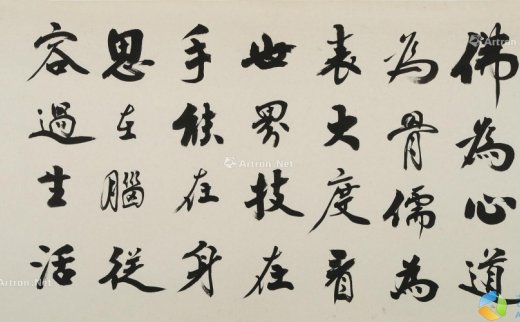 佛為心道
為骨儒為
表大度看
世界技在
手能在身
思在腦從
容過生活
Artron.Net
Artron.Net
Artron.Net